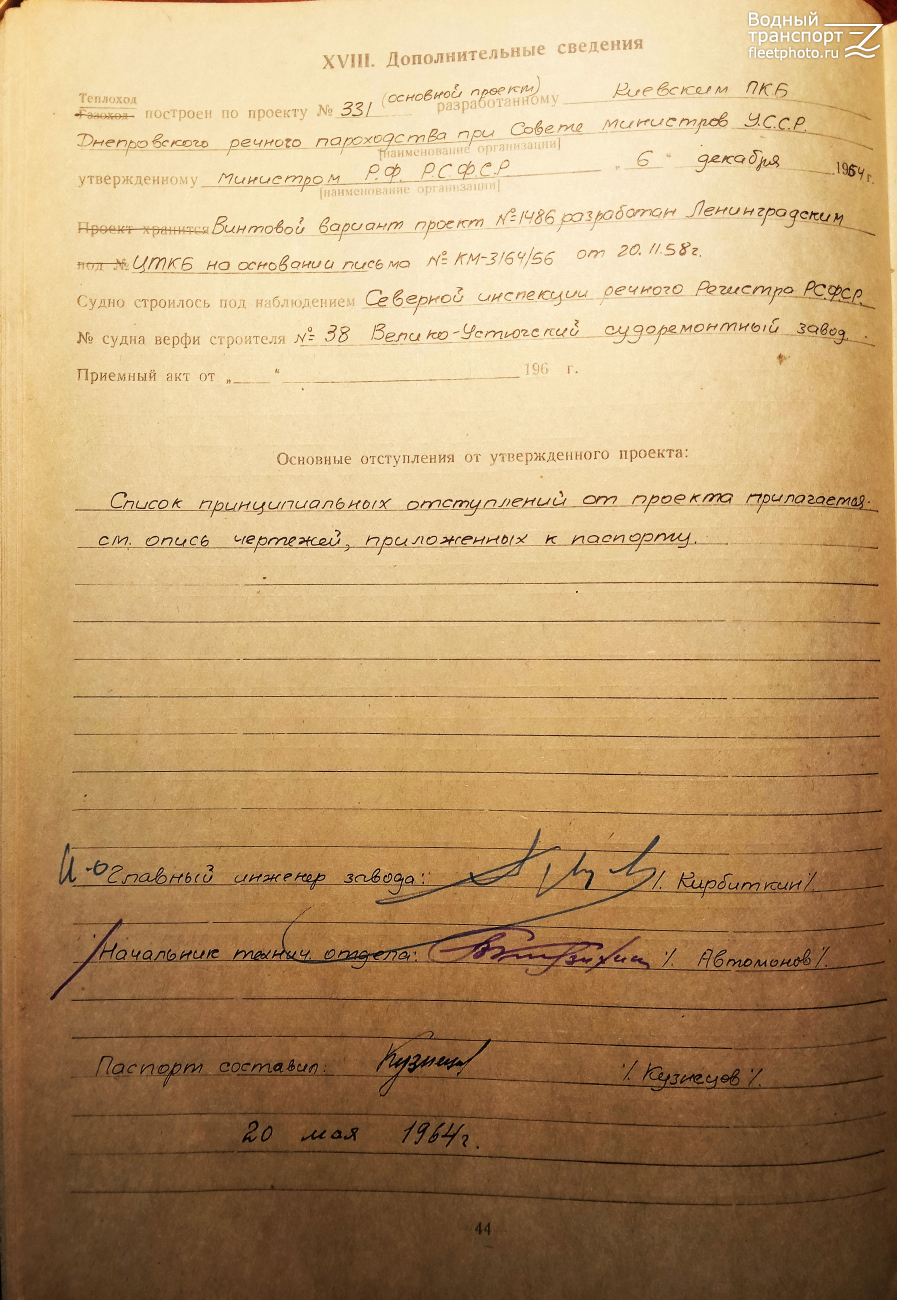 Водный
транспорт
fleetphoto.ru
XVIII. Дополнительные сведения
Теплоход
Газоход построен по проекту № 331 (основной проект) разработанному Киевским ПКБ
Днепровского речного пароходства при Совете министров У.С.С.Р.
[наименование организации]
утвержденному министром Р.Ф. Р.С.Ф.С.Р „ 6 “ декабря г.
[наименование организации]
Проект хранится Винтовой вариант проект №1486 разработан Ленинградским
под № ЦТКБ на основании письма № КМ-3164/56 от 20.11.58г.
Судно строилось под наблюдением Северной инспекции речного Регистра РСФСР.
№ судна верфи строителя № 38 Велико-Устюгский судоремонтный завод.
Приемный акт от „ “ 196 г.
Основные отступления от утвержденного проекта:
Список принципиальных отступлений от проекта прилагается.
см. опись чертежей, приложенных к паспорту.
И.о Главный инженер завода: /. Кирбиткин /.
Начальник технич. отдела: /. Автомонов /.
Паспорт составил: Кузнецов /. Кузнецов /.
20 мая 1964г.
44